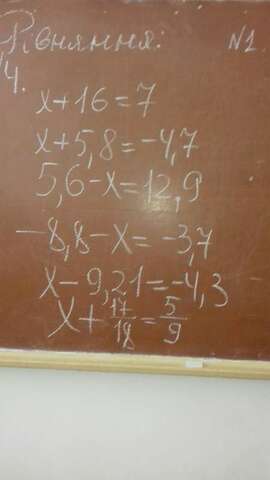 Рівняння: №1
14.
x+16=7
x+5,8=-4,7
5,6-x=12,9
-8,8-x=-3,7
x-9,21=-4,3
x+17/18=5/9